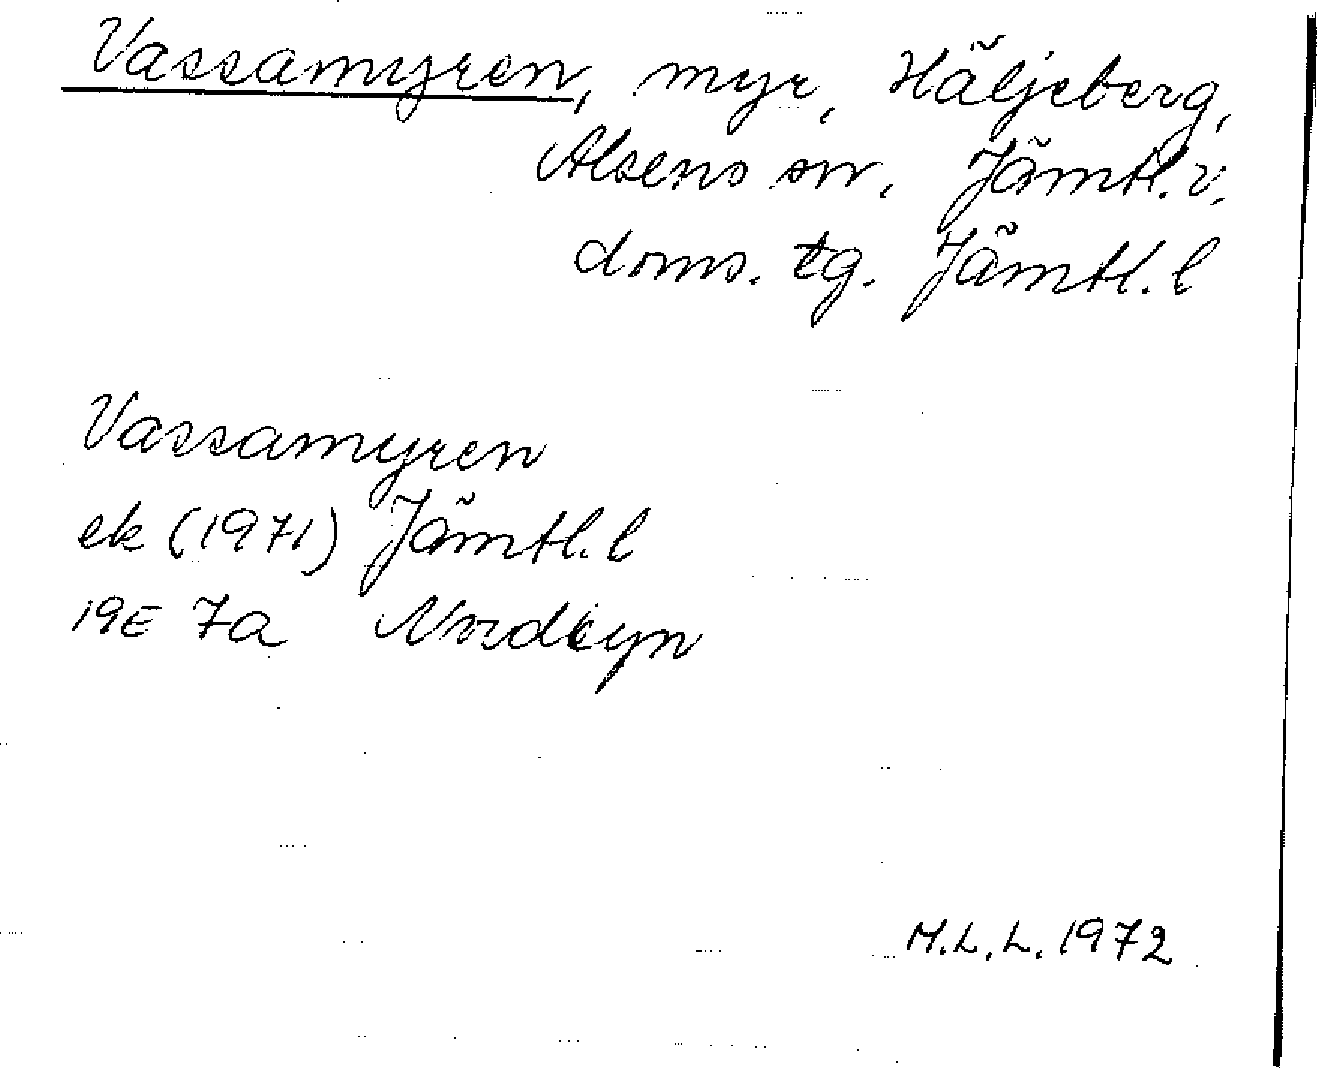 Vassamyren, myr, Häljeberg,
Alsens sn. Jämtl. v.
doms. tg. Jämtl. l
Vassamyren
ek (1971) Jämtl. l
19E 7a Nordkyn
M.L.L. 1972